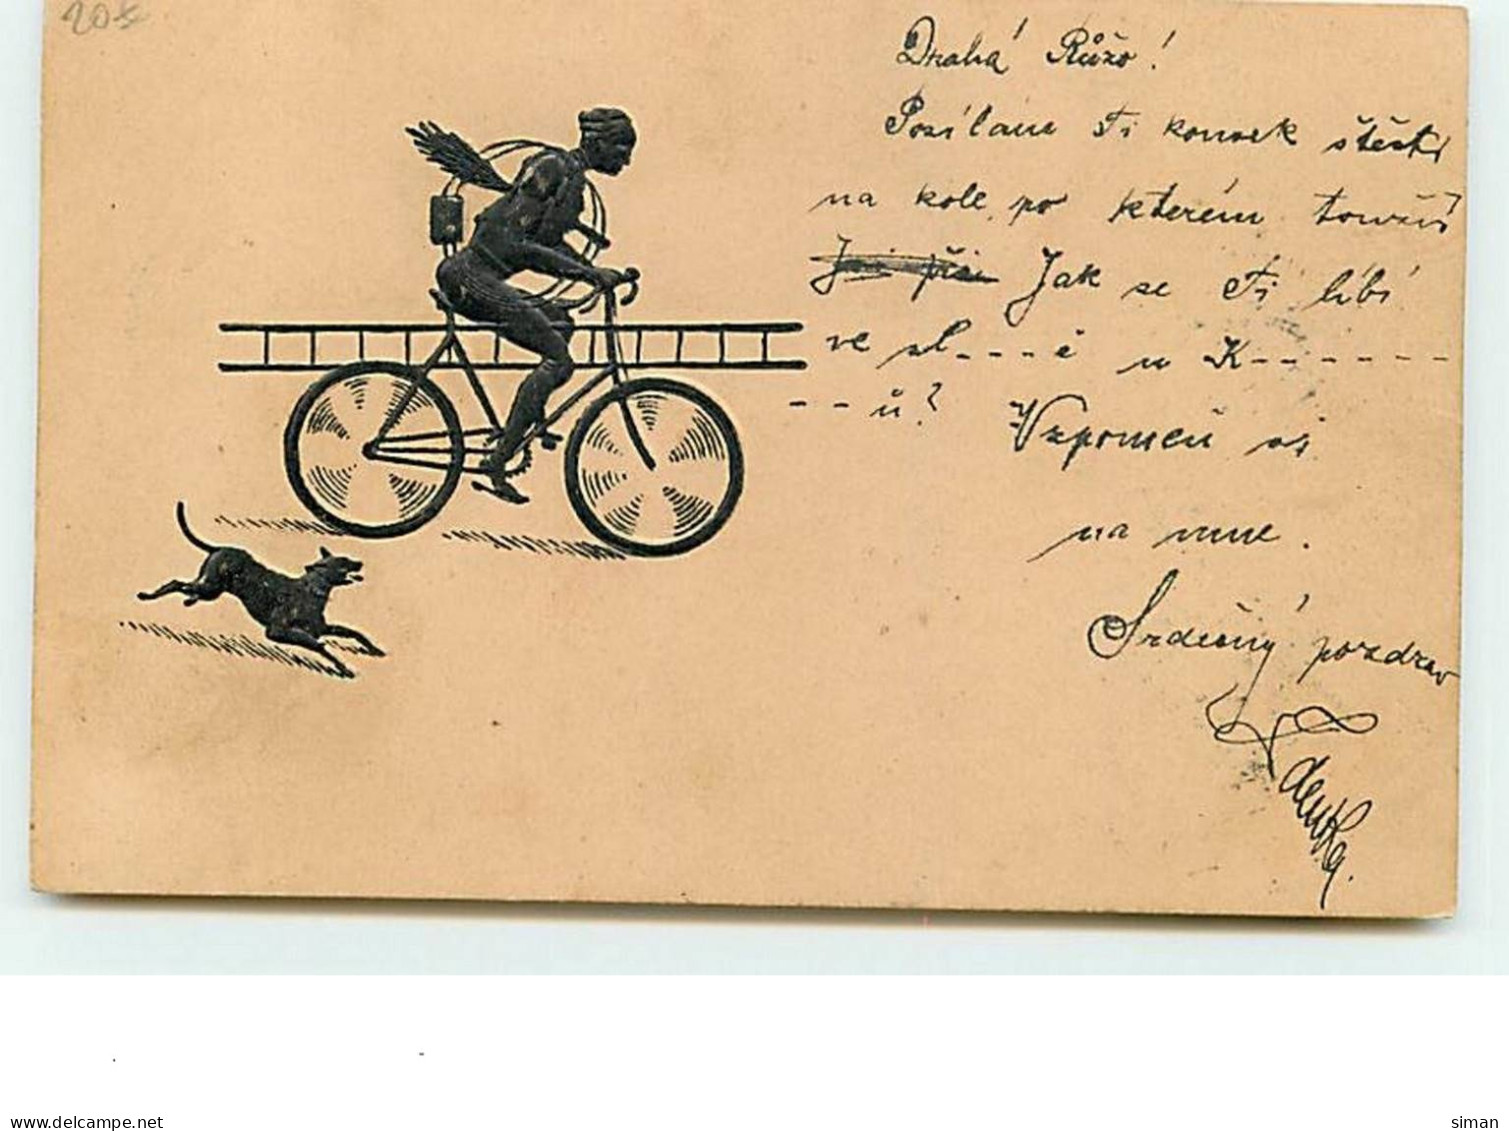 20 Kč
Drahá Růžo!
Posílám Ti kousek štěstí
na kole, po kterém toužíš
Jak se Ti líbí
ve sl---é u K------
--ů? Vzpomeň si
na mne.
Srdečný pozdrav
Zdenka.
www.delcampe.net
siman